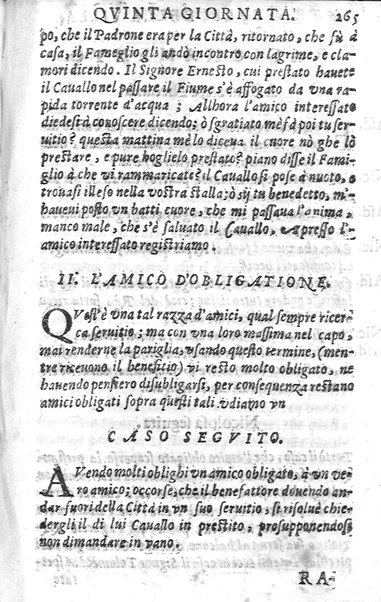 QVINTA GIORNATA. 265
po, che il Padrone era per la Città, ritornato, che fù à
casa, il Fameglio gli andò incontro con lagrime, e cla-
mori dicendo. Il Signore Ernesto, cui prestato hauete
il Cauallo nel passare il Fiume s'è affogato da vna ra-
pida torrente d'acqua; Allhora l'amico interessato
diedesi à conoscere dicendo; ò sgratiato mè fà poi tu ser-
uitio? questa mattina mè lo diceua il cuore nò ghe lò
prestare, e pure hoglielo prestato? piano disse il Fami-
glio à che vi rammaricate? il Cauallo si pose à nuoto, e
trouasi illeso nella vostra stalla; ò sij tu benedetto, m'-
haueui posto vn batti cuore, che mi passaua l'anima,
manco male, che s'è saluato il Cauallo, Apresso l'a-
mico interessato registriamo.
II. L'AMICO D'OBLIGATIONE.
QVest'è vna tal razza d'amici, qual sempre ricer-
ca seruitio; ma con vna loro massima nel capo,
mai renderne la pariglia, vsando questo termine, (men-
tre riceuono il benefitio) vi resto molto obligato, ne
hauendo pensiero disubligarsi, per consequenza restano
amici obligati sopra questi tali vdiamo vn
CASO SEGVITO.
AVendo molti oblighi vn amico obligato, à un ve-
ro amico; occorse, che il benefattore douendo an-
dar fuori della Città in vn suo seruitio, si risoluè chie-
dergli il di lui Cauallo in prestito, prosupponendosi
non dimandare in vano.
RA-